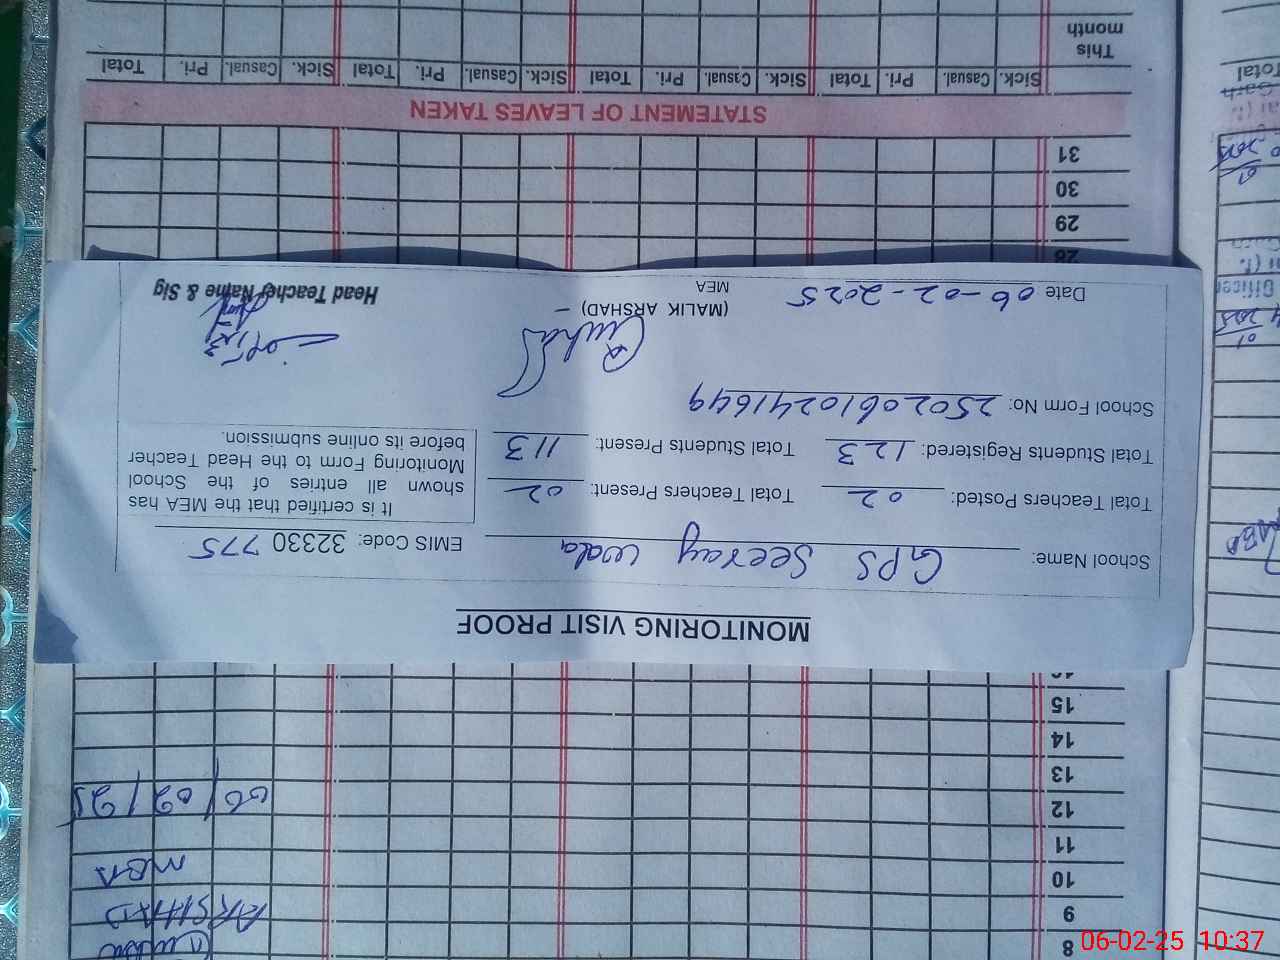 MONITORING VISIT PROOF
School Name: GPS Seeray wala EMIS Code: 32330 775
Total Teachers Posted: 02 Total Teachers Present: 02
Total Students Registered: 123 Total Students Present: 113
It is certified that the MEA has
shown all entries of the School
Monitoring Form to the Head Teacher
before its online submission.
School Form No: 25020610241649
Date 06-02-2025
(MALIK ARSHAD)
MEA
Head Teacher Name & Sig
8
9 ARSHAD
10 MEA
11
12 06/02/25
13
14
15
28
29
30
31
STATEMENT OF LEAVES TAKEN
Sick. Casual. Pri. Total Sick. Casual. Pri. Total Sick. Casual. Pri. Total Sick. Casual. Pri. Total
This
month
Total
06-02-25 10:37